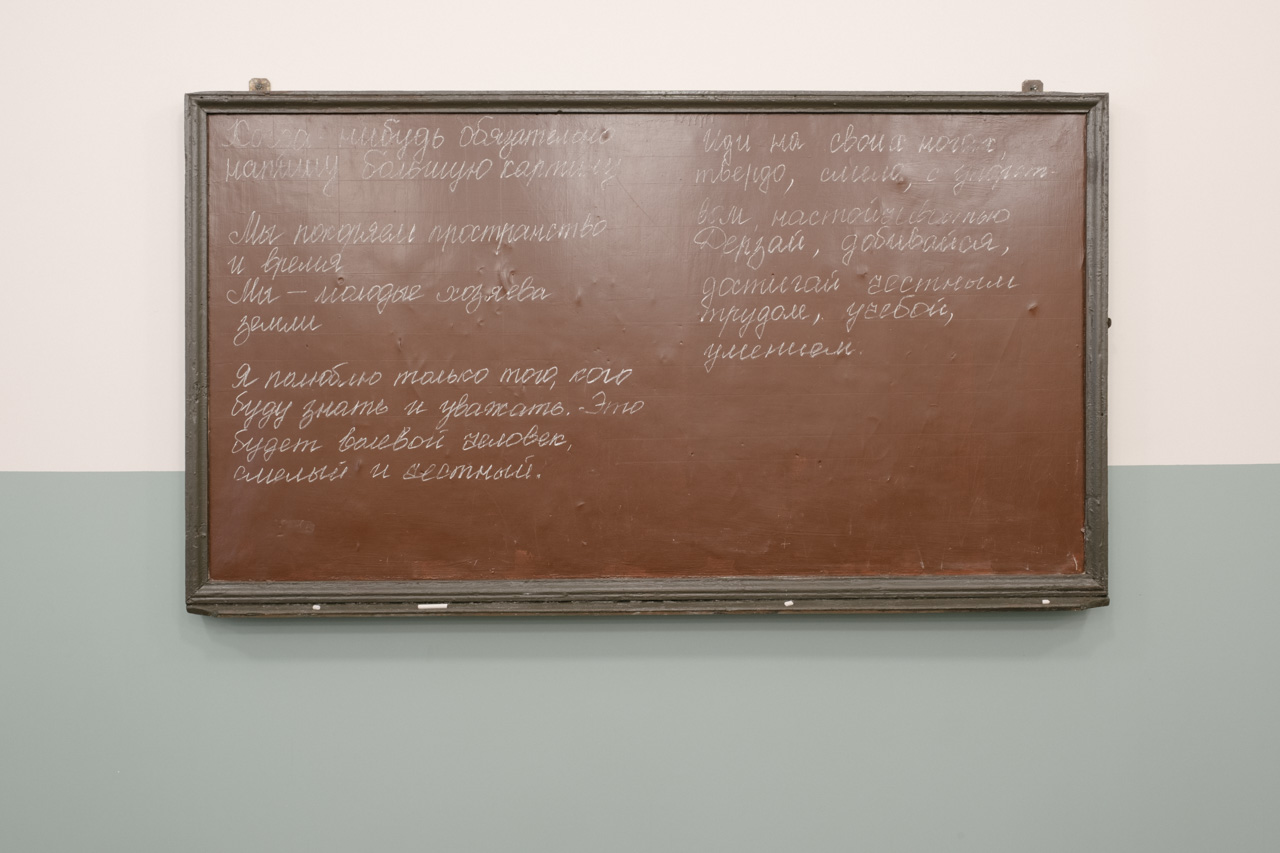 Когда нибудь обязательно
напишу большую картину
Мы покоряем пространство
и время
Мы – молодые хозяева
земли
Я полюблю только того, кого
буду знать и уважать. - Это
будет волевой человек,
смелый и честный.
Иди на своих ногах,
твердо, смело, с
настойчивостью
Дерзай, добивайся,
достигай честным
трудом, учебой,
умением.